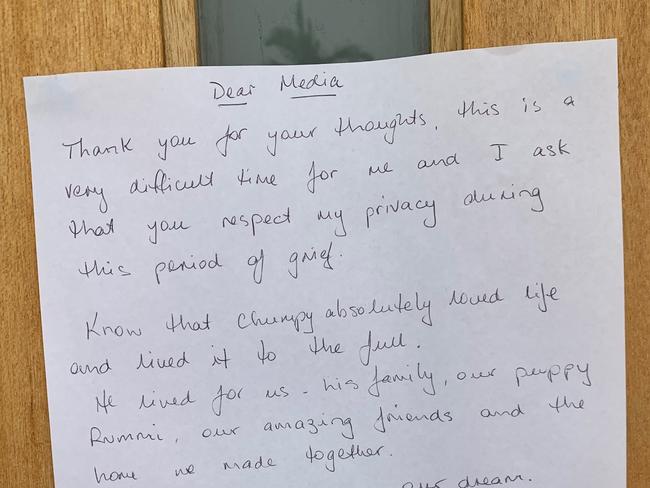 Dear Media
Thank you for your thoughts, this is a
very difficult time for me and I ask
that you respect my privacy during
this period of grief.
Know that Chumpy absolutely loved life
and lived it to the full.
He lived for us - his family, our puppy
Rummi, our amazing friends and the
home we made together.
our dream.